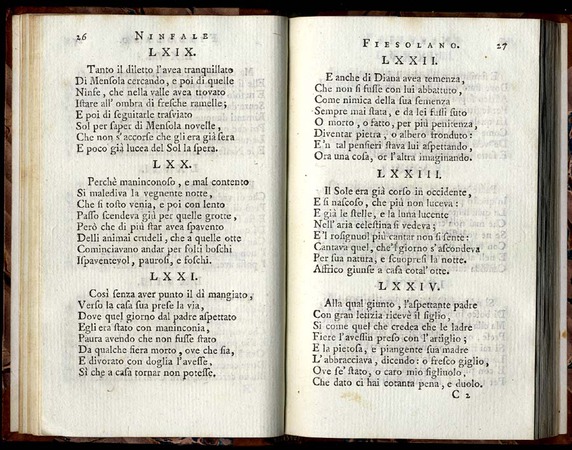 26 NINFALE
LXIX.
Tanto il diletto l'avea tranquillato
Di Mensola cercando, e poi di quelle
Ninfe, che nella valle avea trovato
Iſtare all' ombra di freſche ramelle;
E poi di ſeguitarle traſviato
Sol per ſaper di Menſola novelle,
Che non s'accorſe che gli era già ſera
E poco già lucea del Sol la ſpera.
LXX.
Perchè maninconoso, e mal contento
Si malediva la vegnente notte,
Che ſi toſto venia, e poi con lento
Paſſo ſcendeva già per quelle grotte,
Però che di più ſtar avea ſpavento
Delli animai crudeli, che a quelle otte
Cominciavano andar per folti boſchi
Iſpaventevol, pauroſi, e foſchi.
LXXI.
Così ſenza aver punto il dì mangiato,
Verſo la caſa ſua preſe la via,
Dove quel giorno dal padre aſpettato
Egli era ſtato con maninconia,
Paura avendo che non fuſſe ſtato
Da qualche fiera morto, ove che ſia,
E divorato con doglia l'aveſſe,
Sì che a caſa tornar non poteſſe.
FIESOLANO. 27
LXXII.
E anche di Diana avea temenza,
Che non ſi fuſſe con lui abbattuto,
Come nimica della ſua ſemenza
Sempre mai ſtata, e da lei fuſſi ſuto
O morto, o fatto, per più penitenza,
Diventar pietra, o albero fronduto:
E 'n tal penſieri ſtava lui aſpettando,
Ora una coſa, or l'altra imaginando.
LXXIII.
Il Sole era già corſo in occidente,
E ſi naſcoſo, che più non luceva:
E già le ſtelle, e la luna lucente
Nell' aria celeſtina ſi vedeva;
E'l roſignuol più cantar non ſi ſente:
Cantava quel, che'l giorno s'aſcondeva
Per ſua natura, e ſcuopreſi la notte.
Affrico giunſe a caſa cotal' otte.
LXXIV.
Alla qual giunto, l'aſpettante padre
Con gran letizia ricevè il figlio,
Sì come quel che credea che le ladre
Fiere l'aveſſin preſo con l'artiglio;
E la pietoſa, e piangente ſua madre
L'abbracciava, dicendo: o freſco giglio,
Ove ſe' ſtato, o caro mio figliuolo,
Che dato ci hai cotanta pena, e duolo.
C 2